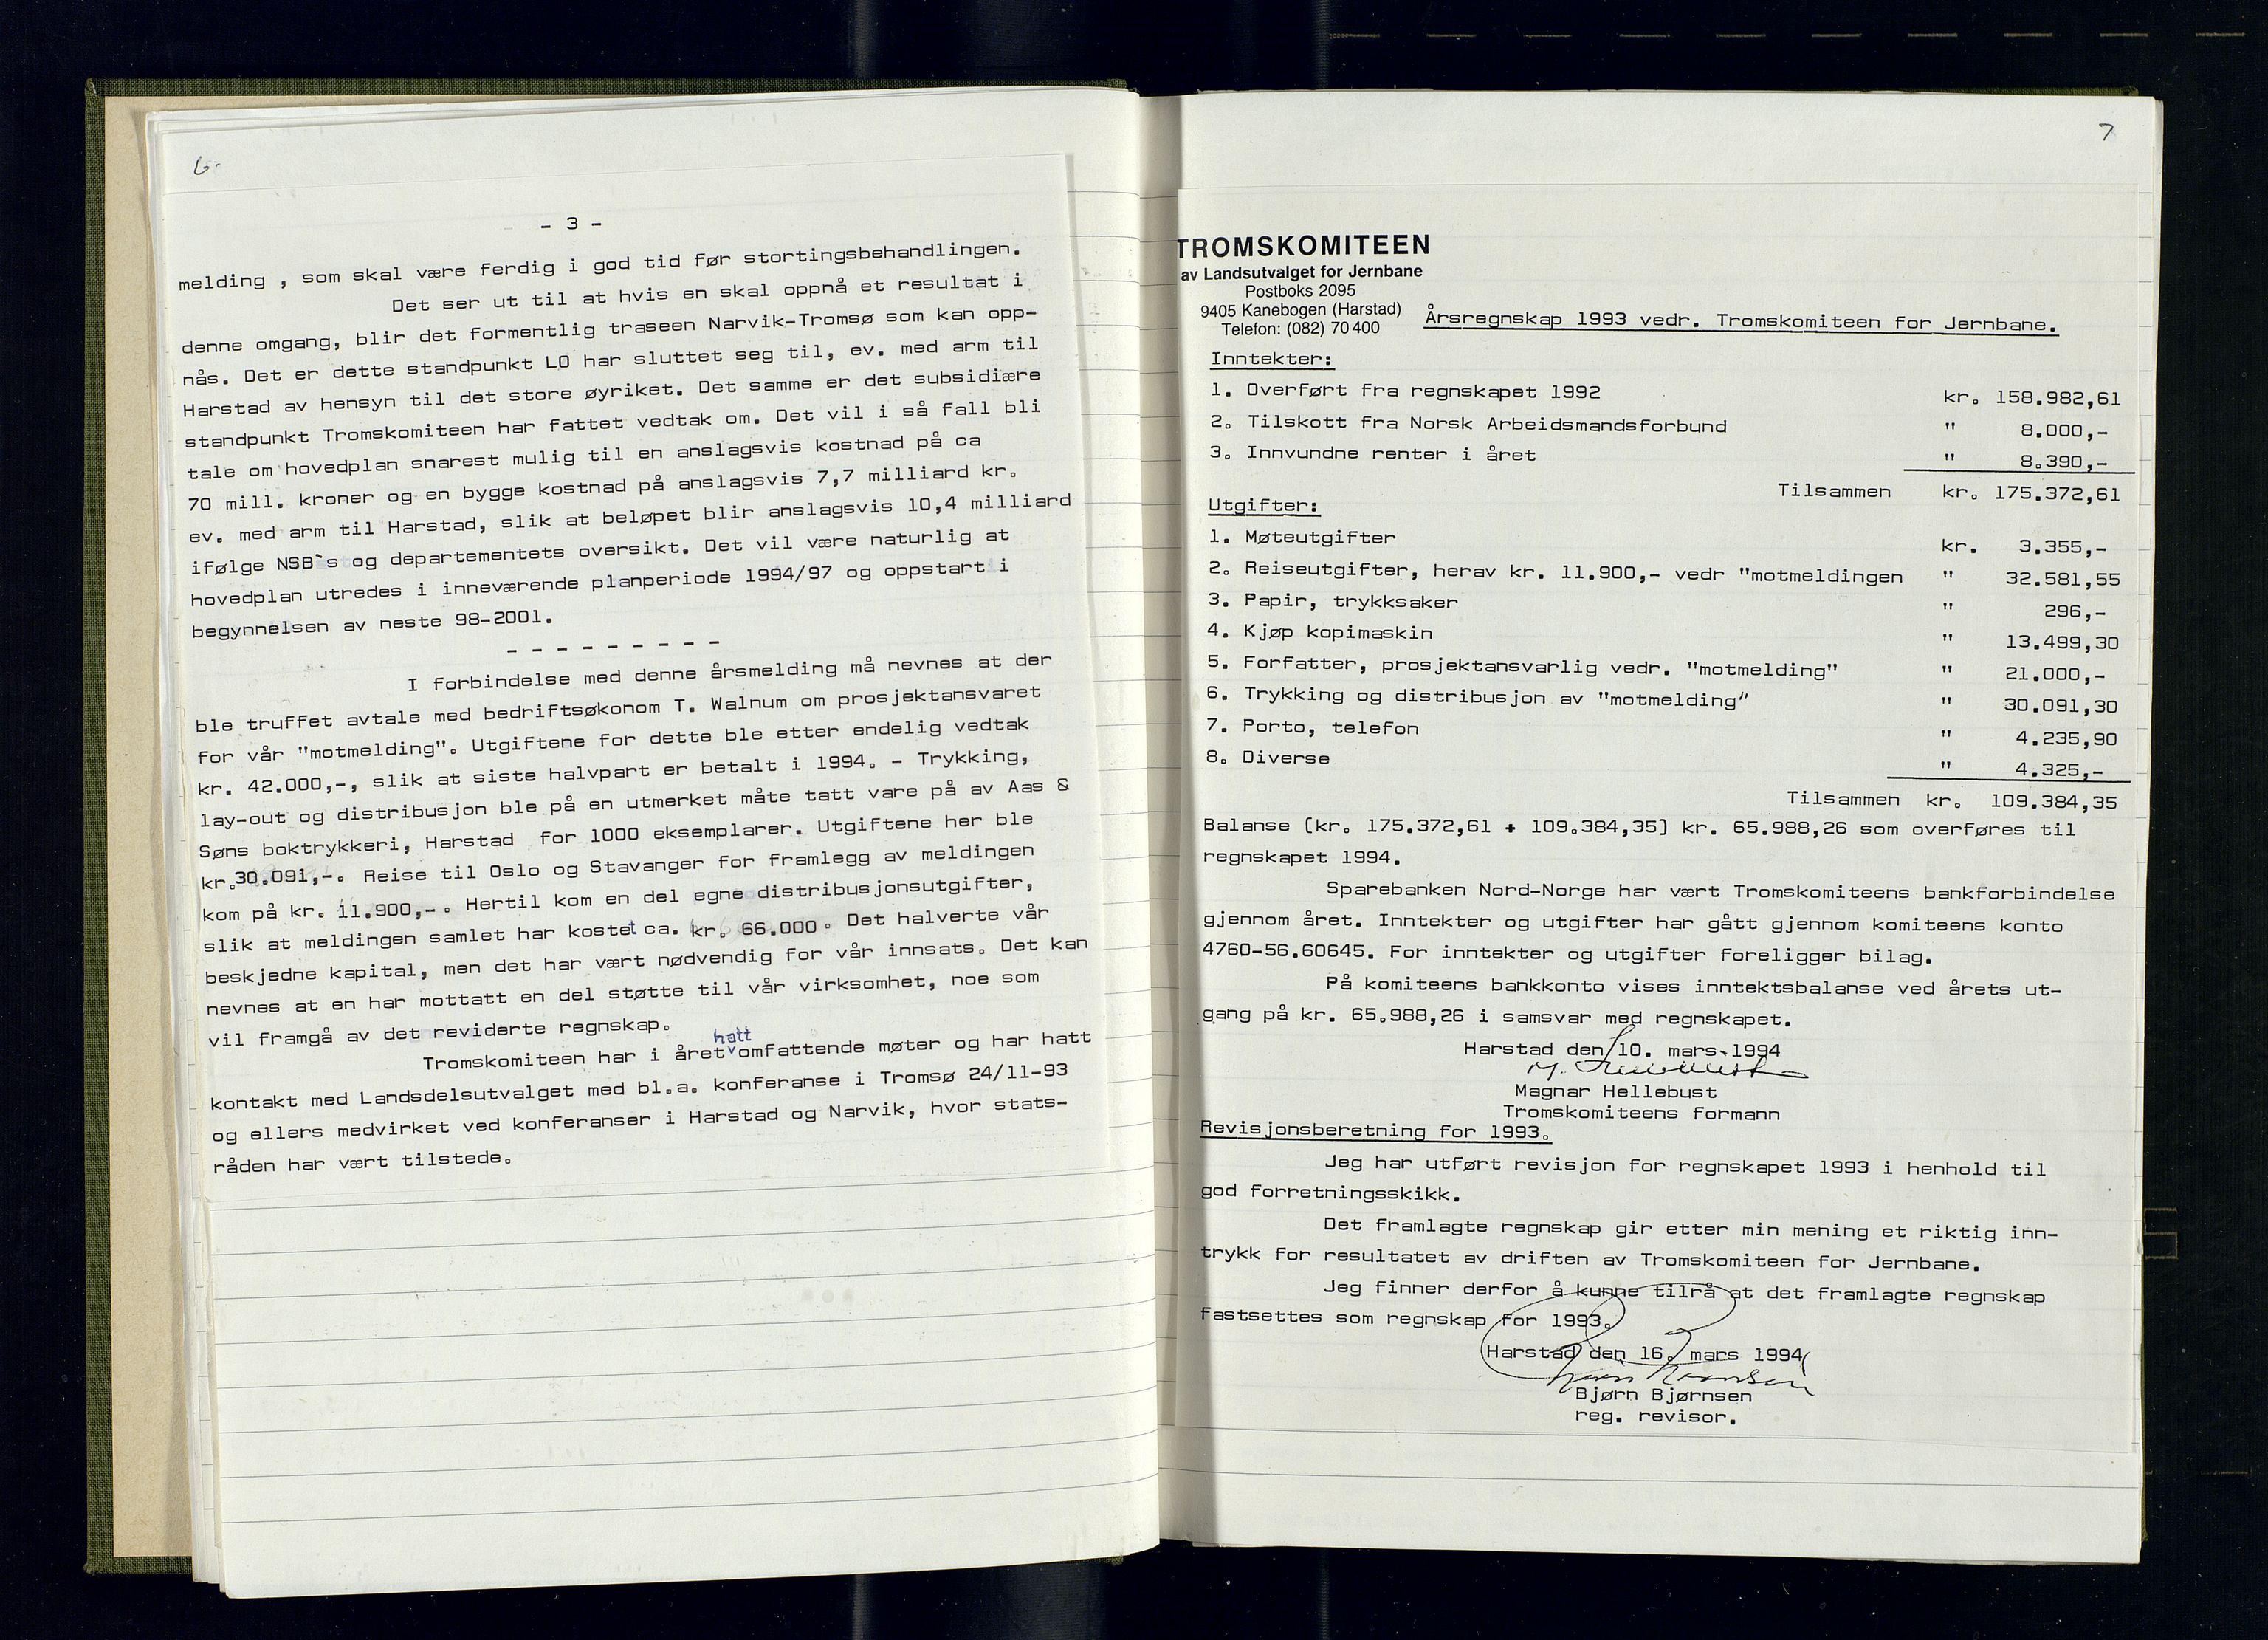 6.
- 3 -
melding , som skal være ferdig i god tid før stortingsbehandlingen.
Det ser ut til at hvis en skal oppnå et resultat i
denne omgang, blir det formentlig traseen Narvik-Tromsø som kan opp-
nås. Det er dette standpunkt LO har sluttet seg til, ev. med arm til
Harstad av hensyn til det store øyriket. Det samme er det subsidiære
standpunkt Tromskomiteen har fattet vedtak om. Det vil i så fall bli
tale om hovedplan snarest mulig til en anslagsvis kostnad på ca
70 mill. kroner og en bygge kostnad på anslagsvis 7,7 milliard kr.
ev. med arm til Harstad, slik at beløpet blir anslagsvis 10,4 milliard
ifølge NSB`s og departementets oversikt. Det vil være naturlig at
hovedplan utredes i inneværende planperiode 1994/97 og oppstart i
begynnelsen av neste 98-2001.
- - - - - - - - -
I forbindelse med denne årsmelding må nevnes at der
ble truffet avtale med bedriftsøkonom T. Walnum om prosjektansvaret
for vår "motmelding". Utgiftene for dette ble etter endelig vedtak
kr. 42.000,-, slik at siste halvpart er betalt i 1994. - Trykking,
lay-out og distribusjon ble på en utmerket måte tatt vare på av Aas &
Søns boktrykkeri, Harstad for 1000 eksemplarer. Utgiftene her ble
kr.30.091,-. Reise til Oslo og Stavanger for framlegg av meldingen
kom på kr. 11.900,-. Hertil kom en del egne distribusjonsutgifter,
slik at meldingen samlet har kostet ca. kr. 66.000. Det halverte vår
beskjedne kapital, men det har vært nødvendig for vår innsats. Det kan
nevnes at en har mottatt en del støtte til vår virksomhet, noe som
vil framgå av det reviderte regnskap.
hatt
Tromskomiteen har i året omfattende møter og har hatt
kontakt med Landsdelsutvalget med bl.a. konferanse i Tromsø 24/11-93
og ellers medvirket ved konferanser i Harstad og Narvik, hvor stats-
råden har vært tilstede.
7
TROMSKOMITEEN
av Landsutvalget for Jernbane
Postboks 2095
9405 Kanebogen (Harstad)
Telefon: (082) 70 400
Årsregnskap 1993 vedr. Tromskomiteen for Jernbane.
Inntekter:
1. Overført fra regnskapet 1992 kr. 158.982,61
2. Tilskott fra Norsk Arbeidsmandsforbund " 8.000,-
3. Innvundne renter i året " 8.390,-
Tilsammen kr. 175.372,61
Utgifter:
1. Møteutgifter kr. 3.355,-
2. Reiseutgifter, herav kr. 11.900,- vedr "motmeldingen " 32.581,55
3. Papir, trykksaker " 296,-
4. Kjøp kopimaskin " 13.499,30
5. Forfatter, prosjektansvarlig vedr. "motmelding" " 21.000,-
6. Trykking og distribusjon av "motmelding" " 30.091,30
7. Porto, telefon " 4.235,90
8. Diverse " 4.325,-
Tilsammen kr. 109.384,35
Balanse (kr. 175.372,61 + 109.384,35) kr. 65.988,26 som overføres til
regnskapet 1994.
Sparebanken Nord-Norge har vært Tromskomiteens bankforbindelse
gjennom året. Inntekter og utgifter har gått gjennom komiteens konto
4760-56.60645. For inntekter og utgifter foreligger bilag.
På komiteens bankkonto vises inntektsbalanse ved årets ut-
gang på kr. 65.988,26 i samsvar med regnskapet.
Harstad den 10. mars 1994
M. Hellebust
Magnar Hellebust
Tromskomiteens formann
Revisjonsberetning for 1993.
Jeg har utført revisjon for regnskapet 1993 i henhold til
god forretningsskikk.
Det framlagte regnskap gir etter min mening et riktig inn-
trykk for resultatet av driften av Tromskomiteen for Jernbane.
Jeg finner derfor å kunne tilrå at det framlagte regnskap
fastsettes som regnskap for 1993.
Harstad den 16. mars 1994
Bjørn Bjørnsen
Bjørn Bjørnsen
reg. revisor.